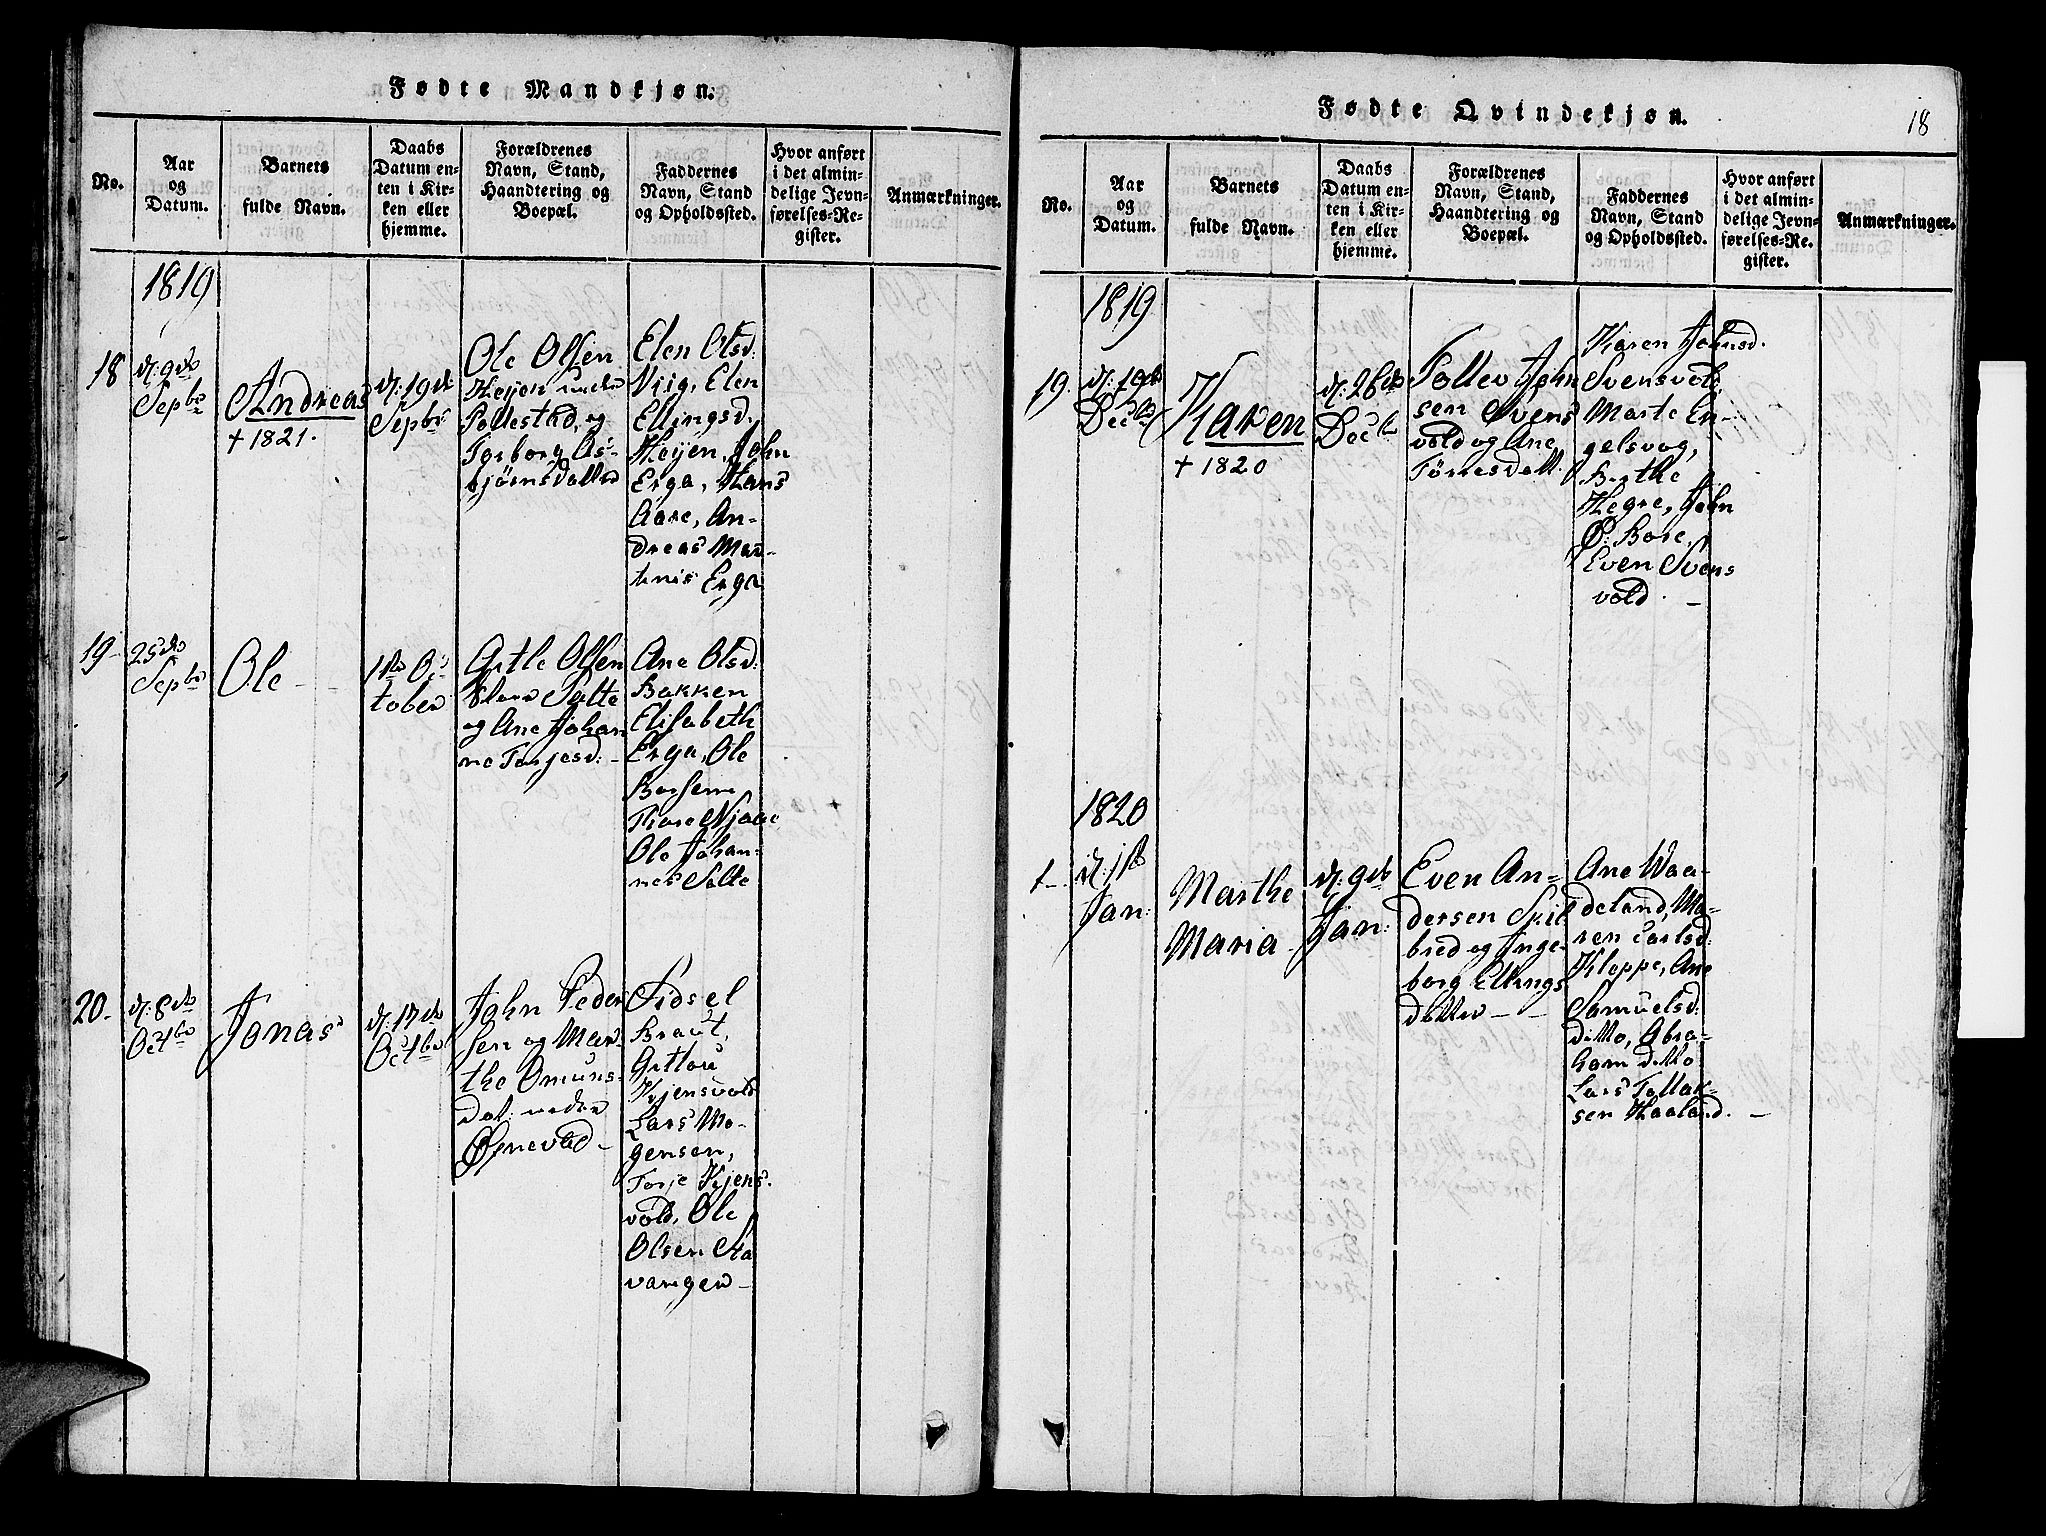 Fødte Mandkjøn.
No.
Aar
og
Datum.
Barnets
fulde Navn.
Daabs
Datum en-
ten i Kir-
ken eller
hjemme.
Forældrenes
Navn, Stand,
Haandtering og
Boepæl.
Faddernes
Navn, Stand
og Opholdssted.
Hvor anført
i det almin-
delige Jevn-
førelses-Re-
gister.
Anmærkninger.
1819
18
d: 9de
Septbr
Andreas
+ 1821.
d: 19de
Septbr
Ole Olsen
Høyen under
Pollestad, og
Torborg As-
bjørnsdatter
Elen Olsd:
Niig, Elen
Ellingsd:
Høyen, John
Erga, Hans
Aase, An-
dreas Mar-
thnis Erga
19-
25de
Septbr
Ole -
1ste Oc-
tober
Ane Olsd:
Bakken
Elisabeth
Erga, Ole
Thore Njaae
Ole Johan-
nes Salte
Olsen
Salte
og Ane Johan
ne Torjesd: -
20-
d: 8de
Octbr
Jonas
d: 17de
Octbr
John Peder
sen og Mar-
the Omuns-
dat: neder
Øgnevad -
Sidsel
Braut,
Gitlou
Kjensvold
Lars Mo-
gensen,
Torje Kjens-
vold, Ole
Olsen Sta
vanger -
Fødte Qvindekjøn.
18
No.
Aar
og
Datum.
Barnets
fulde Navn.
Daabs
Datum en-
ten i Kir-
ken eller
hjemme.
Forældrenes
Navn, Stand,
Haandtering og
Boepæl.
Faddernes
Navn, Stand
og Opholdssted.
Hvor anført
i det almin-
delige Jevn-
førelses-Re-
gister.
Anmærkninger.
1819
19.
d: 19de
Decbr
Karen
+ 1820
d: 26de
Decbr
Tollev John
sen Svens
vold og Ane
Tørresdatt.
Karen Johnsd.
Svensvold,
Marte En-
gelsvog,
Berthe
Hegre, John
Ø: Bore,
Even Svens
vold. -
1820
1-
d: 1ste
Jan:
Marthe
Maria -
d: 9de
Jan:
Even An-
dersen Skil
bred og Inge-
borg Ellings
datter - -
Ane Waa-
deland, Ma-
ren Carlsd:
Kleppe, Ane
Samuelsd:
ditto, Abra-
ham ditto
Lars Tollak-
sen Haaland. -